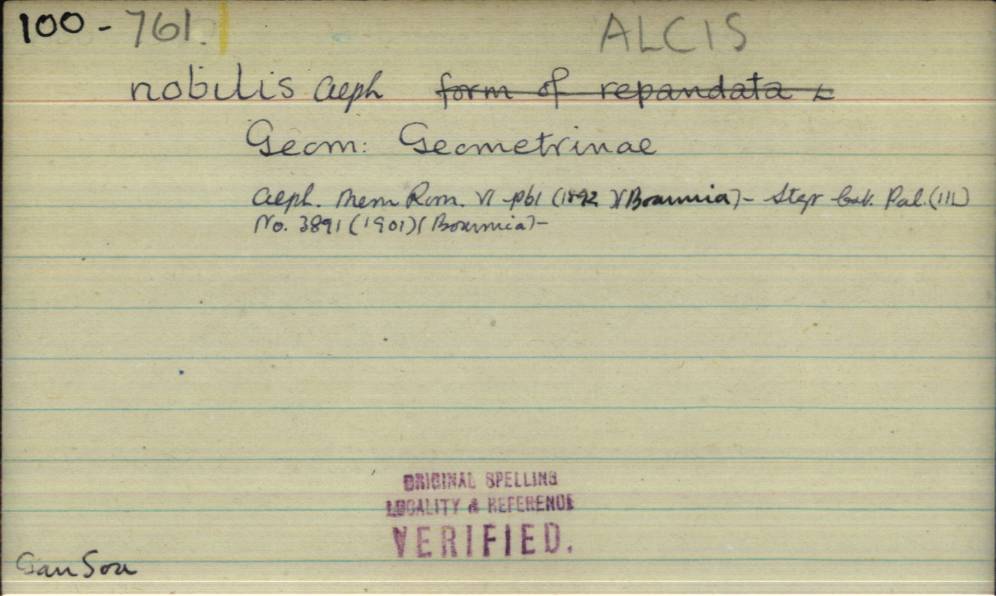 100-761.
ALCIS
nobilis Alph form of repandata L
Geom: Geometrinae
Alph. Mem Rom. VI p61 (1892)(Boarmia)- Stgr Cat. Pal. (III)
No. 3891 (1901)(Boarmia)-
ORIGINAL SPELLING
LOCALITY & REFERENCE
VERIFIED.
Gan Sou